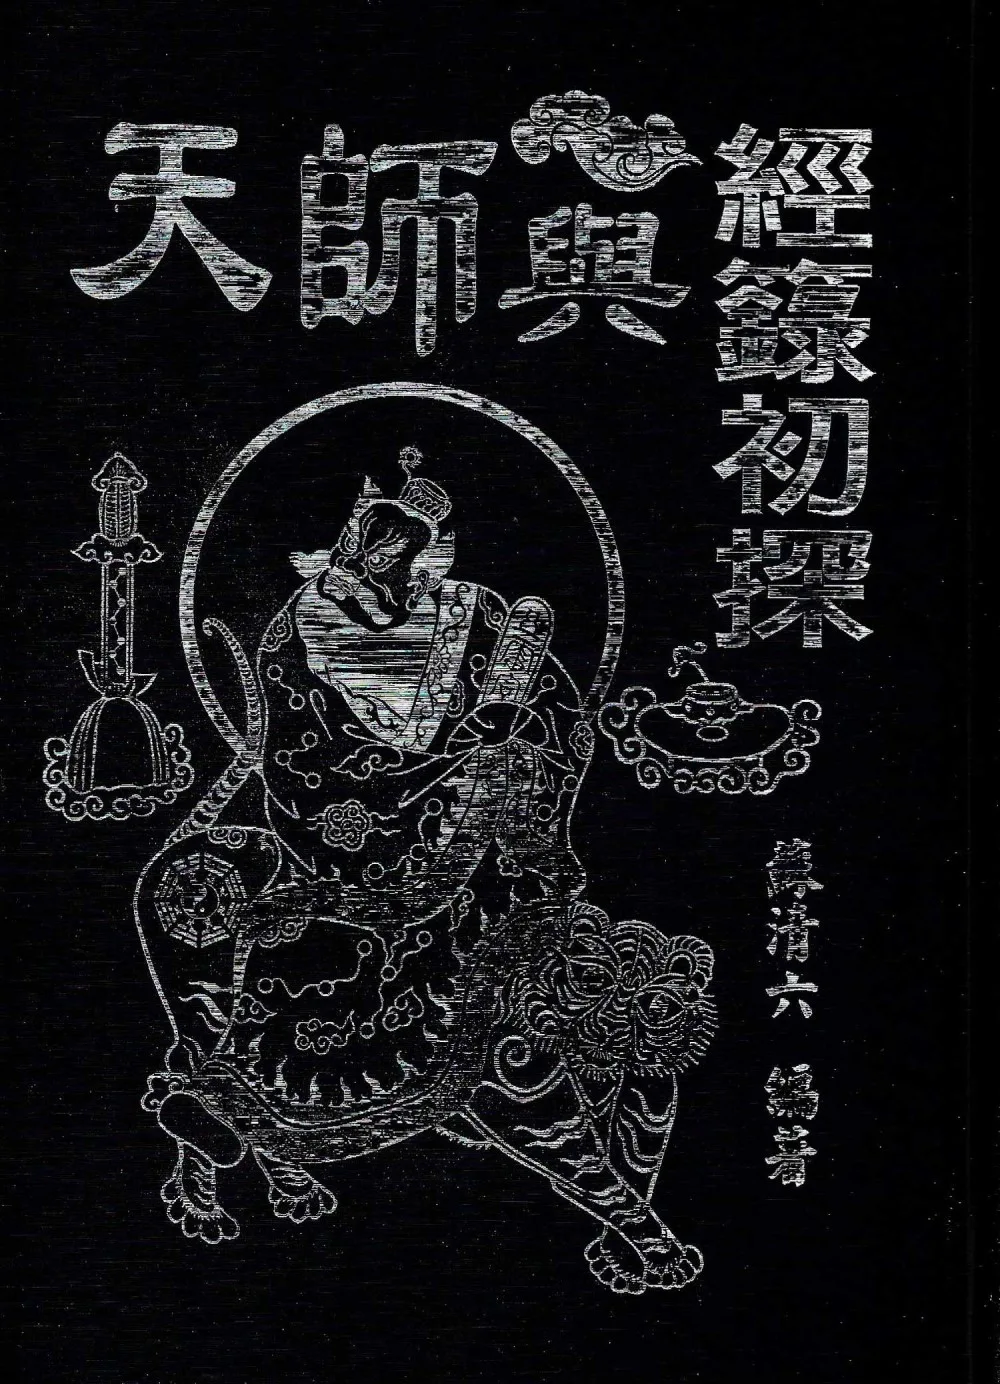 天師與
經籙初探
蘇清六 編著